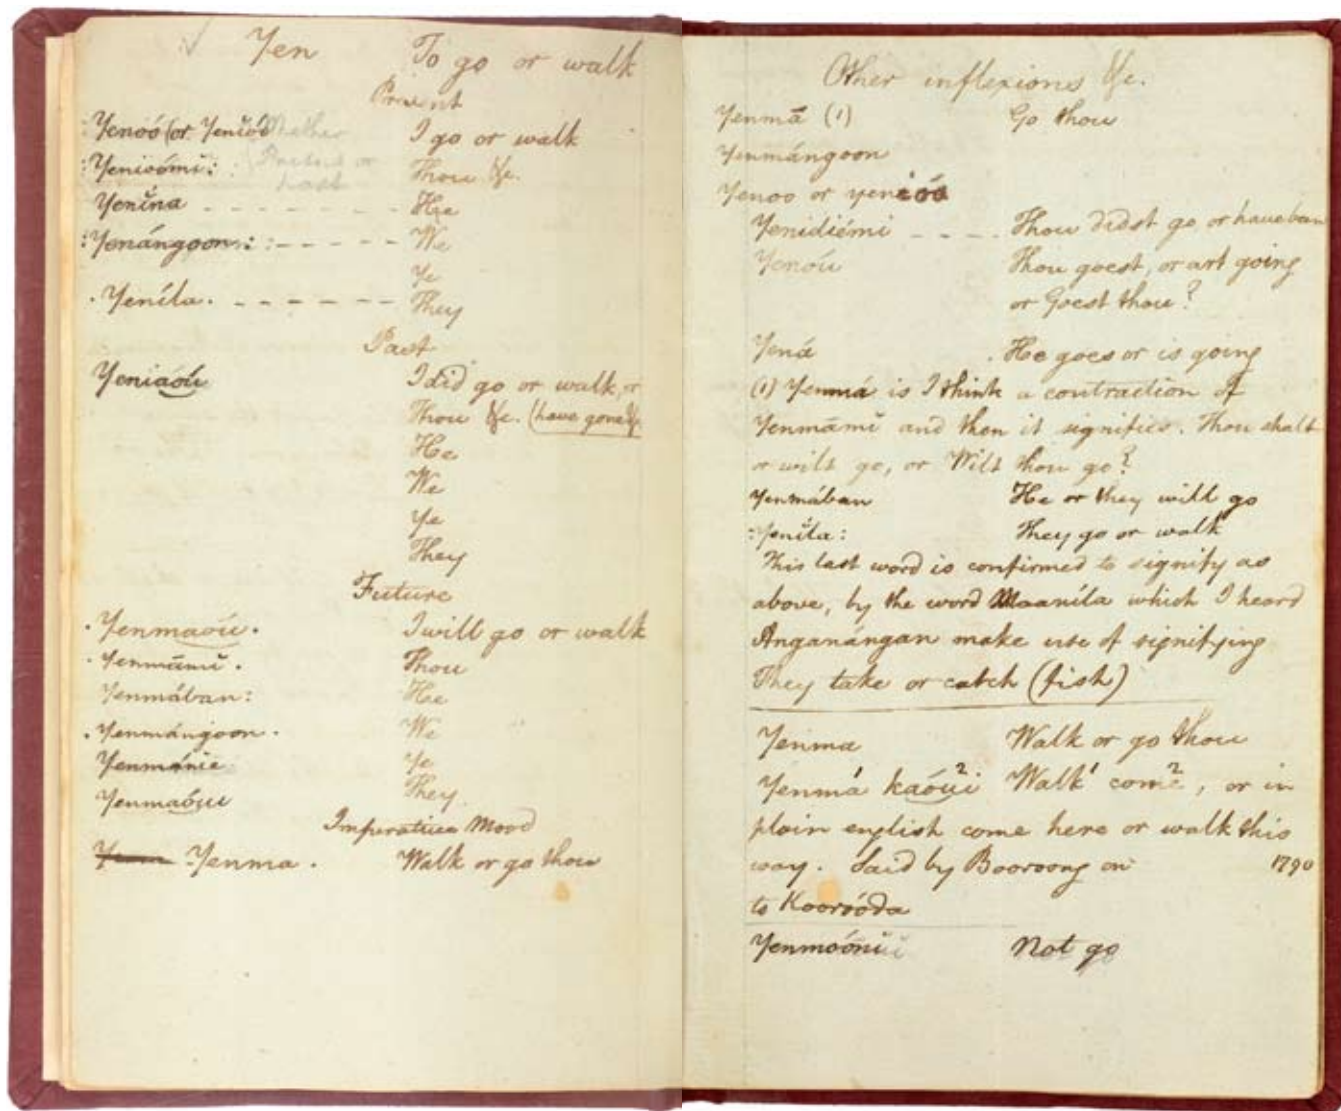 Yen To go or walk
Present
:Yenoó (or Yenioó Whether I go or walk
:Yenioómi: (Present or Thou &c.
past
Yenĭna - - - - - - - He
:Yenángoon: :- - - - - We
Ye
. Yeníla. - - - - - - - They
Past
Yeniaoú I did go or walk, or
Thou &c. (have gone &c
He
We
Ye
They
Future
. Yenmaoú. I will go or walk
. Yenmāmĭ. Thou
Yenmában: He
. Yenmángoon. We
Yenmánie Ye
Yenmaóui They
Imperative Mood
:Yenma. Walk or go thou
Other inflexions &c.
Yenmā (1) Go thou
Yenmángoon
Yenoo or yenioó
Yenidiémi - - - - Thou didst go or have been
Yenóu Thou goest, or art going
or Goest thou?
Yená . He goes or is going
(1) Yenmá is I think a contraction of
Yenmāmĭ and then it signifies. Thou shalt
or wilt go, or Wilt thou go?
Yenmában He or they will go
:Yenĭla: They go or walk
This last word is confirmed to signify as
above, by the word Maaníla which I heard
Anganángan make use of signifying
They take or catch (fish)
Yenma Walk or go thou
Yenmá¹ kaóui² Walk¹ come², or in
plain english come here or walk this
way. Said by Booroong on 1790
to Kooroóda
Yenmoónĭ Not go